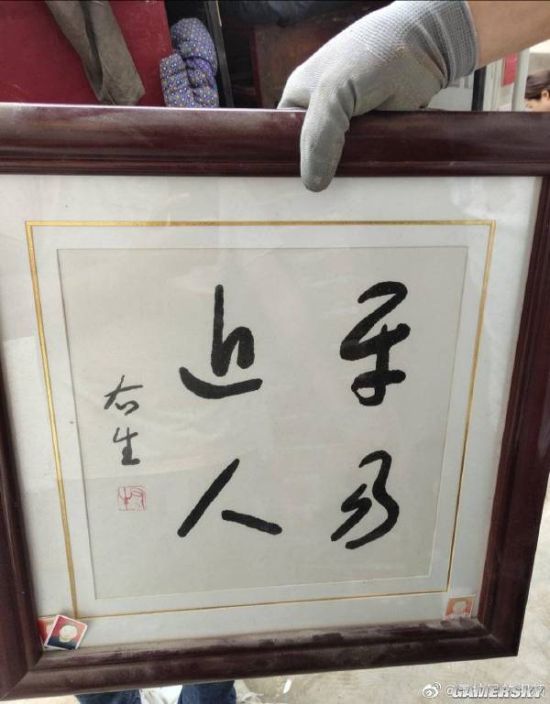 平易
近人
右生
GAMERSKY